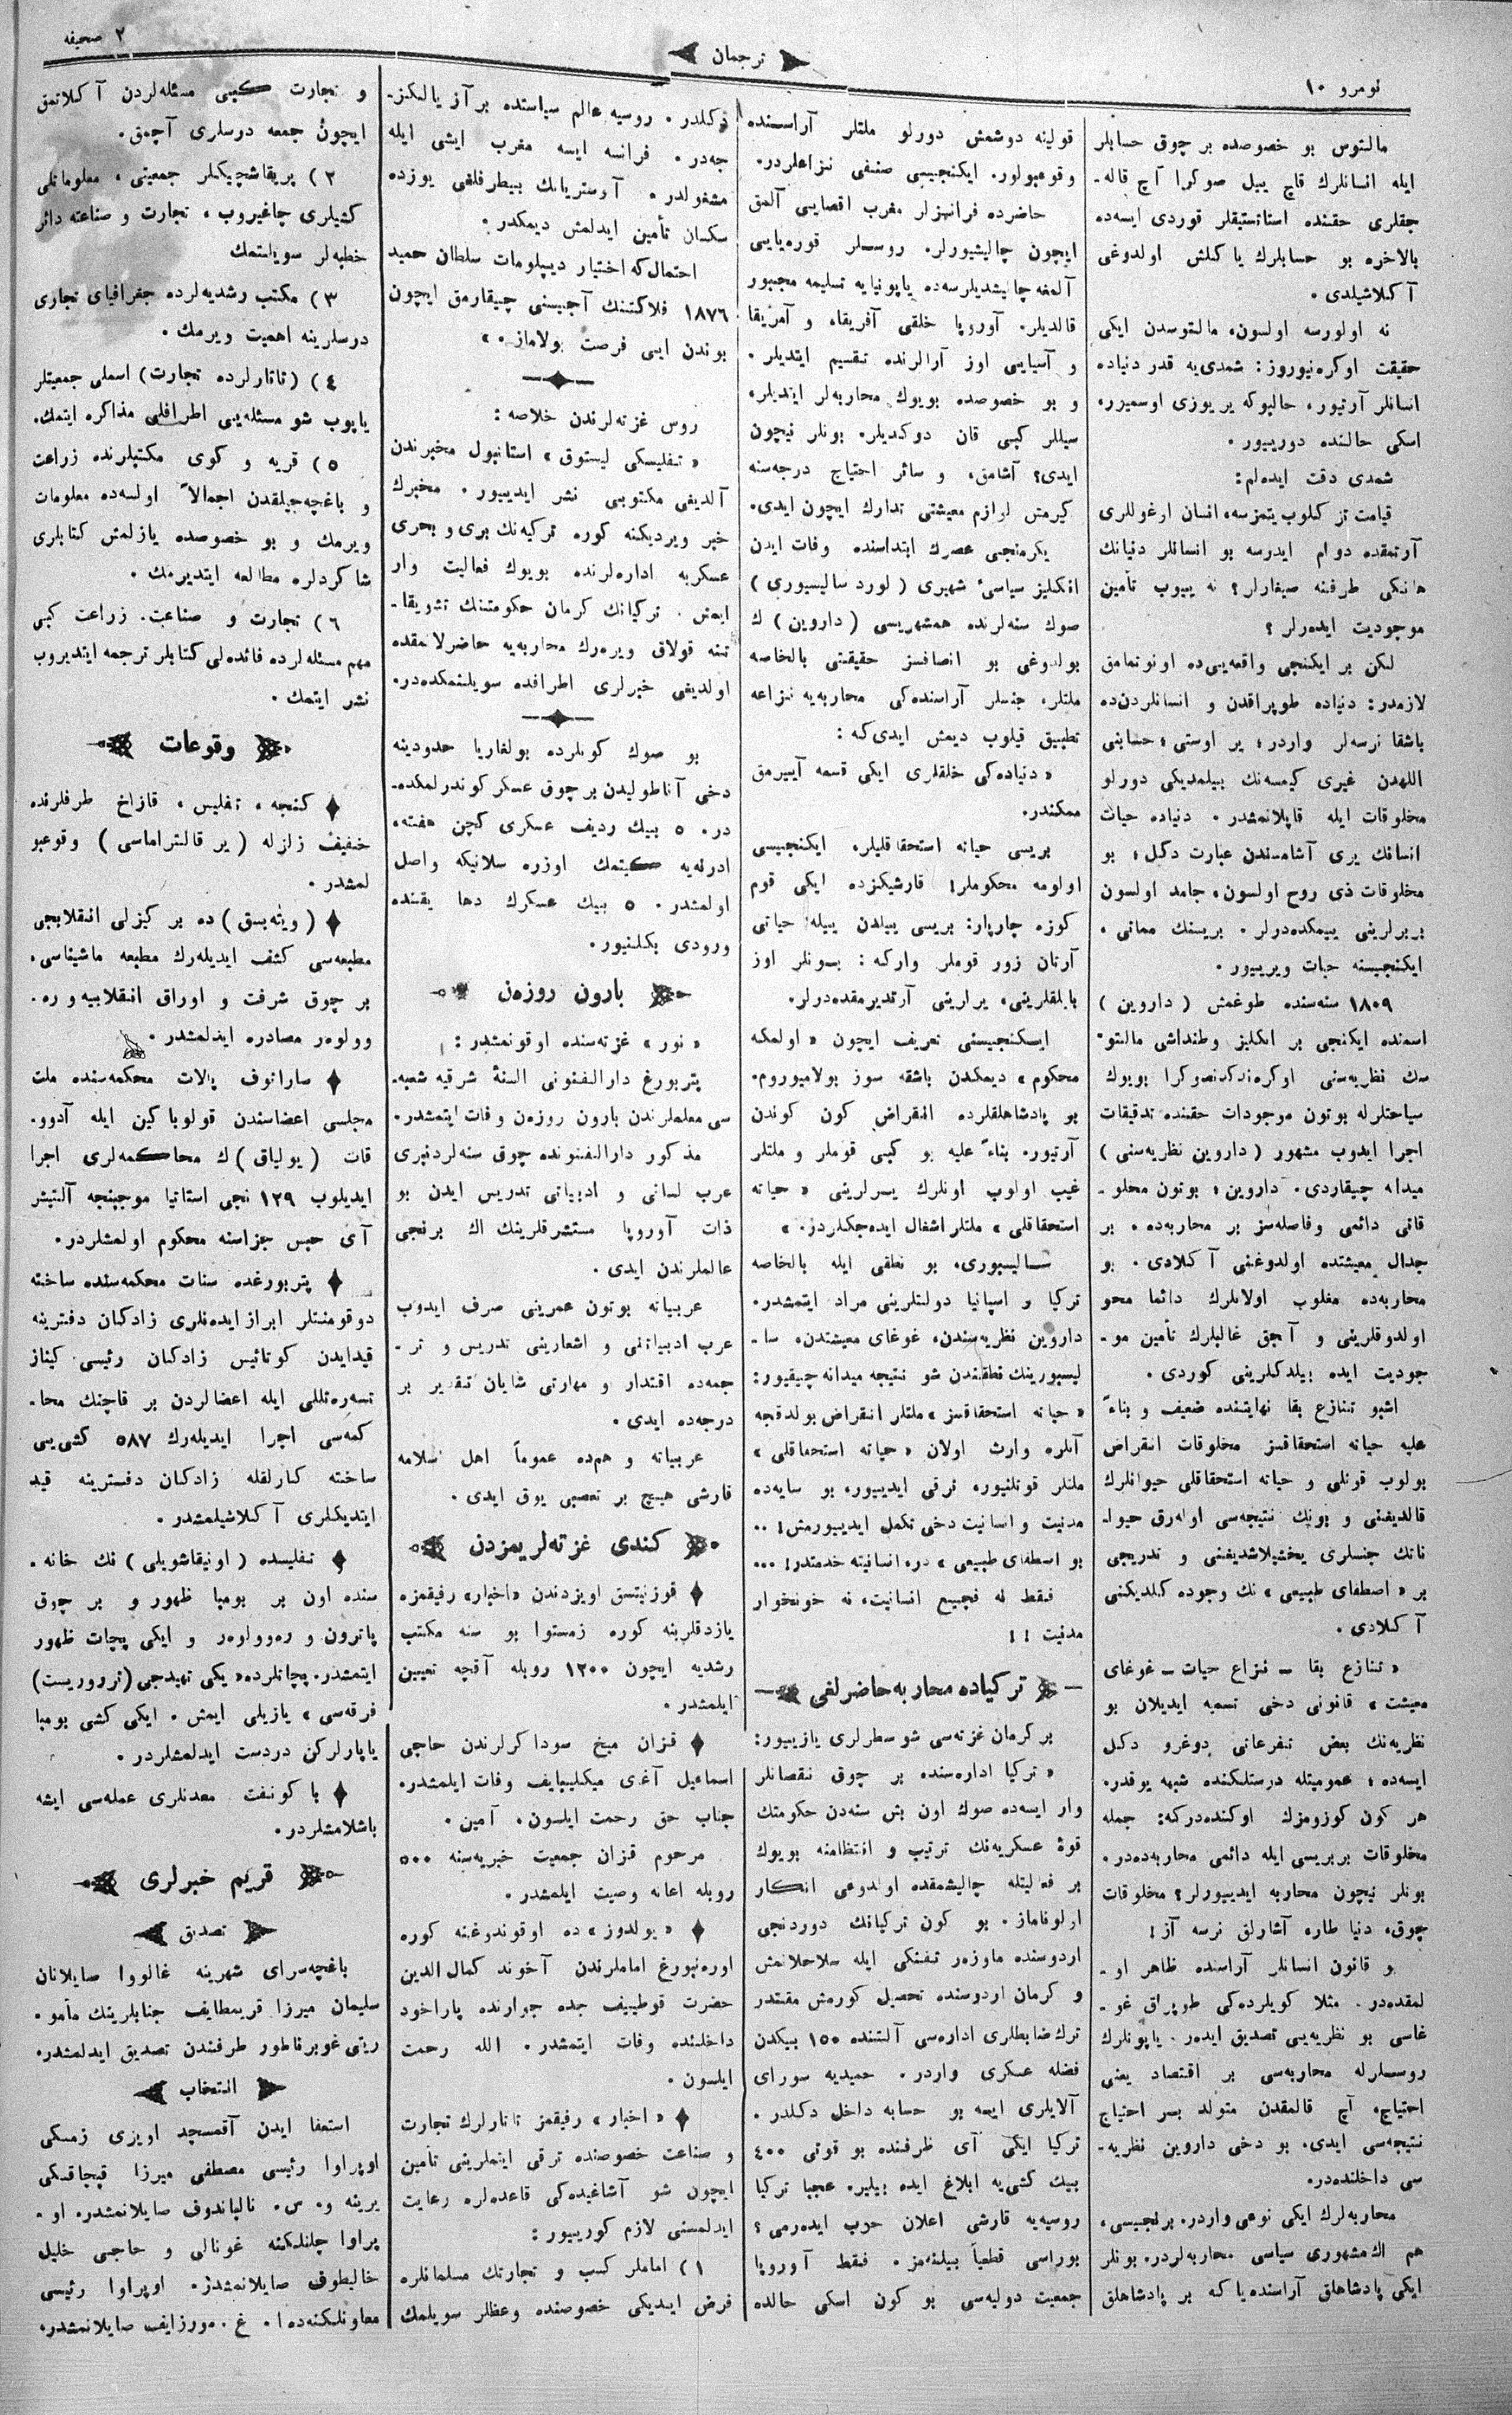 نومرو ١٠
ترجمان
٢ صحیفه
مالتوس بو خصوصده بر چوق حسابلر
ایله انسانلرك قاچ ییل صوكرا آچ قاله-
جقلری حقنده استاتستیقلر قوردی ایسه‌ده
بالاخره بو حسابلرك یاكلش اولدوغی
آكلاشیلدی.
نه اولورسه اولسون، مالتوسدن ایكی
حقیقت اوكره‌نیوروز: شمدی‌یه قدر دنیاده
انسانلر آرتیور، حالبوكه یر یوزی اوسمیور،
اسكی حالنده دورییور.
شمدی دقت ایده‌لم:
قیامت تز كلوب یتمزسه، انسان ارغوللری
آرتمقده دوام ایدرسه بو انسانلر دنیانك
هانكی طرفنه صیغارلر؟ نه ییوب تأمین
موجودیت ایده‌رلر؟
لكن بر ایكنجی واقعه‌یی‌ده اونوتمامق
لازمدر: دنیاده طوپراقدن و انسانلردن‌ده
باشقا نرسه‌لر واردر؛ یر اوستی، حسابنی
اللهدن غیری كیمسه‌نك بیلمدیكی دورلو
مخلوقات ایله قاپلانمشدر. دنیاده حیات
انسانك یری آشامسندن عبارت دكل؛ بو
مخلوقات ذی روح اولسون، جامد اولسون
بربرلرینی ییمكده‌درلر. بریسنك مماتی،
ایكنجیسنه حیات ویرییور.
١٨٠٩ سنه‌سنده طوغمش (داروین)
اسمنده ایكنجی بر انكلیز وطنداشی مالتو-
سك نظریه‌سنی اوكره‌ندكدنصوكرا بویوك
سیاحتلرله بوتون موجودات حقنده تدقیقات
اجرا ایدوب مشهور (داروین نظریه‌سنی)
میدانه چیقاردی. داروین؛ بوتون مخلو-
قاتی دائمی وفاصله‌سز بر محاربه‌ده، بر
جدال معیشتده اولدوغنی آكلادی. بو
محاربه‌ده مغلوب اولانلرك دائما محو
اولدوقلرینی و آجق غالبلرك تأمین مو-
جودیت ایده بیلدكلرینی كوردی.
اشبو تنازع بقا نهایتنده ضعیف و بناءً
علیه حیاته استحقاقسز مخلوقات انقراض
بولوب قوتلی و حیاته استحقاقلی حیوانلرك
قالدیغنی و بونك نتیجه‌سی اوله‌رق حیوا-
ناتك جنسلری یخشیلاشدیغنی و تدریجی
بر «اصطفای طبیعی» نك وجوده كلدیكنی
آكلادی.
«تنازع بقا - نزاع حیات - غوغای
معیشت» قانونی دخی تسمیه ایدیلان بو
نظریه‌نك بعض تفرعاتی دوغرو دكل
ایسه‌ده؛ عمومیتله درستلكنده شبهه یوقدر.
هر كون كوزومزك اوكنده‌دركه: جمله
مخلوقات بربریسی ایله دائمی محاربه‌ده‌در.
بونلر نیچون محاربه ایدییورلر؟ مخلوقات
چوق، دنیا طار، آشارلق نرسه آز!
بو قانون انسانلر آراسنده ظاهر او-
لمقده‌در. مثلا كویلرده‌كی طوپراق غو-
غاسی بو نظریه‌یی تصدیق ایدەر. یاپونلرك
روسلرله محاربه‌سی بر اقتصاد یعنی
احتیاج، آچ قالمقدن متولد بر احتیاج
نتیجه‌سی ایدی. بو دخی داروین نظریه-
سی داخلنده‌در.
محاربه‌لرك ایكی نوعی واردر. برنجیسی،
هم اك مشهوری سیاسی محاربه‌لردر. بونلر
ایكی پادشاهلق آراسنده یاكه بر پادشاهلق
قولینه دوشمش دورلو ملتلر آراسنده
وقوعبولور. ایكنجیسی صنفی نزاعلردر.
حاضرده فرانسزلر مغرب اقصایی آلمق
ایچون چالیشیورلر. روسلر قوره‌یایی
آلمغه چالیشدیلرسه‌ده یاپونیایه تسلیمه مجبور
قالدیلر. آوروپا خلقی آفریقا، و آمریقا
و آسیایی اوز آرالرنده تقسیم ایتدیلر.
و بو خصوصده بویوك محاربه‌لر ایتدیلر،
سیللر كبی قان دوكدیلر. بونلر نیچون
ایدی؟ آشامق، و سائر احتیاج درجه‌سنه
كیرمش لوازم معیشتی تدارك ایچون ایدی.
یكرمنجی عصرك ابتداسنده وفات ایدن
انكلیز سیاسیٔ شهیری (لورد سالیسبوری)
صوك سنه‌لرنده همشهریسی (داروین) ك
بولدوغی بو انصافسز حقیقتی بالخاصه
ملتلر، جنسلر آراسنده‌كی محاربه‌یه نزاعه
تطبیق قیلوب دیمش ایدی‌كه:
«دنیاده‌كی خلقلری ایكی قسمه آییرمق
ممكندر.
بریسی حیاته استحقاقلیلر، ایكنجیسی
اولومه محكوملر! قارشیكزده ایكی قوم
كوزه چارپار: بریسی ییلدن ییله حیاتی
آرتان زور قوملر واركه: بونلر اوز
بایلقلرینی، یرلرینی آرتدیرمقده‌درلر.
ایكنجیسنی تعریف ایچون «اولمكه
محكوم» دیمكدن باشقه سوز بولامیوروم.
بو پادشاهلقلرده انقراض كون كوندن
آرتیور. بناءً علیه بو كبی قوملر و ملتلر
غیب اولوب اونلرك یرلرینی «حیاته
استحقاقلی» ملتلر اشغال ایده‌جكلردر.»
سالیسبوری، بو نطقی ایله بالخاصه
تركیا و اسپانیا دولتلرینی مراد ایتمشدر.
داروین نظریه‌سندن، غوغای معیشتدن، سا-
لیسبورینك نطقندن شو نتیجه میدانه چیقیور:
«حیاته استحقاقسز» ملتلر انقراض بولدقجه
آنلره وارث اولان «حیاته استحقاقلی»
ملتلر قوتلنیور، ترقی ایدییور، بو سایه‌ده
مدنیت و انسانیت دخی تكمل ایدییورمش!..
بو اسطفای طبیعی» دره انسانیته خدمتدر!...
فقط نه فجیع انسانیت، نه خونخوار
مدنیت!!
تركیاده محاربه حاضرلغی
بر كرمان غزته‌سی شو سطرلری یازییور:
«تركیا اداره‌سنده بر چوق نقصانلر
وار ایسه‌ده صوك اون بش سنه‌دن حكومتك
قوهٔ عسكریه‌نك ترتیب و انتظامنه بویوك
بر فعالیتله چالیشمقده اولدوغی انكار
اولوناماز. بو كون تركیانك دوردنجی
اردوسنده ماوزەر تفنكی ایله سلاحلانمش
و كرمان اردوسنده تحصیل كورمش مقتدر
ترك ضابطلری اداره‌سی آلتنده ١٥٠ بیكدن
فضله عسكری واردر. حمیدیه سورای
آلایلری ایسه بو حسابه داخل دكلدر.
تركیا ایكی آی ظرفنده بو قوتی ٤٠٠
بیك كشی‌یه ابلاغ ایده بیلیر. عجبا تركیا
روسیه‌یه قارشی اعلان حرب ایده‌رمی؟
بوراسی قطعیاً بیلنەمز. فقط آوروپا
جمعیت دولیه‌سی بو كون اسكی حالده
دكلدر. روسیه عالم سیاستده بر آز یالكز-
جه‌در. فرانسه ایسه مغرب ایشی ایله
مشغولدر. آوستریانك بیطرفلغی یوزده
سكسان تأمین ایدلمش دیمكدر.
احتمال‌كه اختیار دیپلومات سلطان حمید
١٨٧٦ فلاكتنك آجیسنی چیقارمق ایچون
بوندن ایی فرصت بولاماز.»
روس غزته‌لرندن خلاصه:
«تفلیسكی لیستوق» استانبول مخبرندن
آلدیغی مكتوبی نشر ایدییور. مخبرك
خبر ویردیكنه كوره تركیه‌نك بری و بحری
عسكریه اداره‌لرنده بویوك فعالیت وار
ایمش. تركیانك كرمان حكومتنك تشویقا-
تنه قولاق ویره‌رك محاربه‌یه حاضرلانمقده
اولدیغی خبرلری اطرافده سویلنمكده‌در.
بو صوك كونلرده بولغاریا حدودینه
دخی آناطولیدن بر چوق عسكر كوندرلمكده-
در. ٥ بیك ردیف عسكری كچن هفته،
ادرنه‌یه كیتمك اوزره سلانیكه واصل
اولمشدر. ٥ بیك عسكرك دها یقنده
ورودی بكلنیور.
بارون روزەن
«نور» غزته‌سنده اوقونمشدر:
پتربورغ دارالفنونی السنهٔ شرقیه شعبه-
سی معلملرندن بارون روزەن وفات ایتمشدر.
مذكور دارالفنونده چوق سنه‌لردنبری
عرب لسانی و ادبیاتی تدریس ایدن بو
ذات آوروپا مستشرقلرینك اك برنجی
عالملرندن ایدی.
عربیاته بوتون عمرینی صرف ایدوب
عرب ادبیاتنی و اشعارینی تدریس و تر-
جمه‌ده اقتدار و مهارتی شایان تقدیر بر
درجه‌ده ایدی.
عربیاته و هم‌ده عموماً اهل اسلامه
قارشی هیچ بر تعصبی یوق ایدی.
كندی غزته‌لریمزدن
قوزنیتسق اویزدندن «اخبار» رفیقمزه
یازدقلرینه كوره زمستوا بو سنه مكتب
رشدیه ایچون ١٢٠٠ روبله آقچه تعیین
ایلمشدر.
قزان میخ سوداكرلرندن حاجی
اسماعیل آغای میكلیپایف وفات ایلمشدر.
جناب حق رحمت ایلسون. آمین.
مرحوم قزان جمعیت خیریه‌سنه ٥٠٠
روبله اعانه وصیت ایلمشدر.
«یولدوز» ده اوقوندوغنه كوره
اوره‌نبورغ اماملرندن آخوند كمال الدین
حضرت قوطییف جده جوارنده پاراخود
داخلنده وفات ایتمشدر. الله رحمت
ایلسون.
«اخبار» رفیقمز تاتارلرك تجارت
و صناعت خصوصنده ترقی ایتملرینی تأمین
ایچون شو آشاغیده‌كی قاعده‌لره رعایت
ایدلمسنی لازم كورییور:
١) اماملر كسب و تجارتك مسلمانلره
فرض ایدیكی خصوصنده وعظلر سویلمك
و تجارت كبی مسئله‌لردن آكلاتمق
ایچون جمعه درسلری آچمق.
٢) پریقاشچیكلر جمعیتی، معلوماتلی
كشیلری چاغیروب، تجارت و صناعته دائر
خطبه‌لر سویلتمك
٣) مكتب رشدیه‌لرده جغرافیای تجاری
درسلرینه اهمیت ویرمك.
٤) (تاتارلرده تجارت) اسملی جمعیتلر
یاپوب شو مسئله‌یی اطرافلی مذاكره ایتمك.
٥) قریه و كوی مكتبلرنده زراعت
و باغچه‌جیلقدن اجمالاً اولسه‌ده معلومات
ویرمك و بو خصوصده یازلمش كتابلری
شاكردلره مطالعه ایتدیرمك.
٦) تجارت و صناعت. زراعت كبی
مهم مسئله‌لرده فائده‌لی كتابلر ترجمه ایتدیروب
نشر ایتمك.
وقوعات
كنجه، تفلیس، قازاخ طرفلرنده
خفیف زلزله (یر قالتراماسی) وقوعبو
لمشدر.
(ویته‌بسق) ده بر كیزلی انقلابجی
مطبعه‌سی كشف ایدیله‌رك مطبعه ماشیناسی،
بر چوق شرفت و اوراق انقلابیه و ره-
وولوەر مصادره ایدلمشدر.
ساراتوف پالات محكمه‌سنده ملت
مجلسی اعضاسندن قولوباكین ایله آدوو-
قات (یولیاق) ك محاكمه‌لری اجرا
ایدیلوب ١٢٩ نجی استاتیا موجبنجه آلتیشر
آی حبس جزاسنه محكوم اولمشلردر.
پتربورغده سنات محكمه‌سنده ساخته
دوقومنتلر ابراز ایده‌نلری زادكان دفترینه
قیدایدن كوتائیس زادكان رئیسی كیناز
تسەرەتللی ایله اعضالردن بر قاچنك محا-
كمه‌سی اجرا ایدیله‌رك ٥٨٧ كشی‌یی
ساخته كارلقله زادكان دفترینه قید
ایتدیكلری آكلاشیلمشدر.
تفلیسده (اونیقاشویلی) نك خانه-
سنده اون بر بومبا ظهور و بر چوق
پاترون و رەوولوەر و ایكی پچات ظهور
ایتمشدر. پچاتلرده «یكی تهیدجی (ترووریست)
فرقه‌سی» یازیلی ایمش. ایكی كشی بومبا
یاپارلركن دردست ایدلمشلردر.
باكو نفت معدنلری عمله‌سی ایشه
باشلامشلردر.
قریم خبرلری
تصدیق
باغچه‌سرای شهرینه غالووا صایلانان
سلیمان میرزا قریمطایف جنابلرینك مأمو-
ریتی غوبرناطور طرفندن تصدیق ایدلمشدر.
انتخاب
استعفا ایدن آقمسجد اویزی زمسكی
اوپراوا رئیسی مصطفی میرزا قیپچاقسكی
یرینه و. س. نالباندوف صایلانمشدر. او-
پراوا چلنلكنه غونالی و حاجی خلیل
خالیطوف صایلانمشدر. اوپراوا رئیسی
معاونلكنه‌ده ا. غ. مورزایف صایلانمشدر.